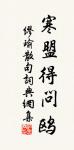 寒盟得问鸥
缪瑜散句词典网集